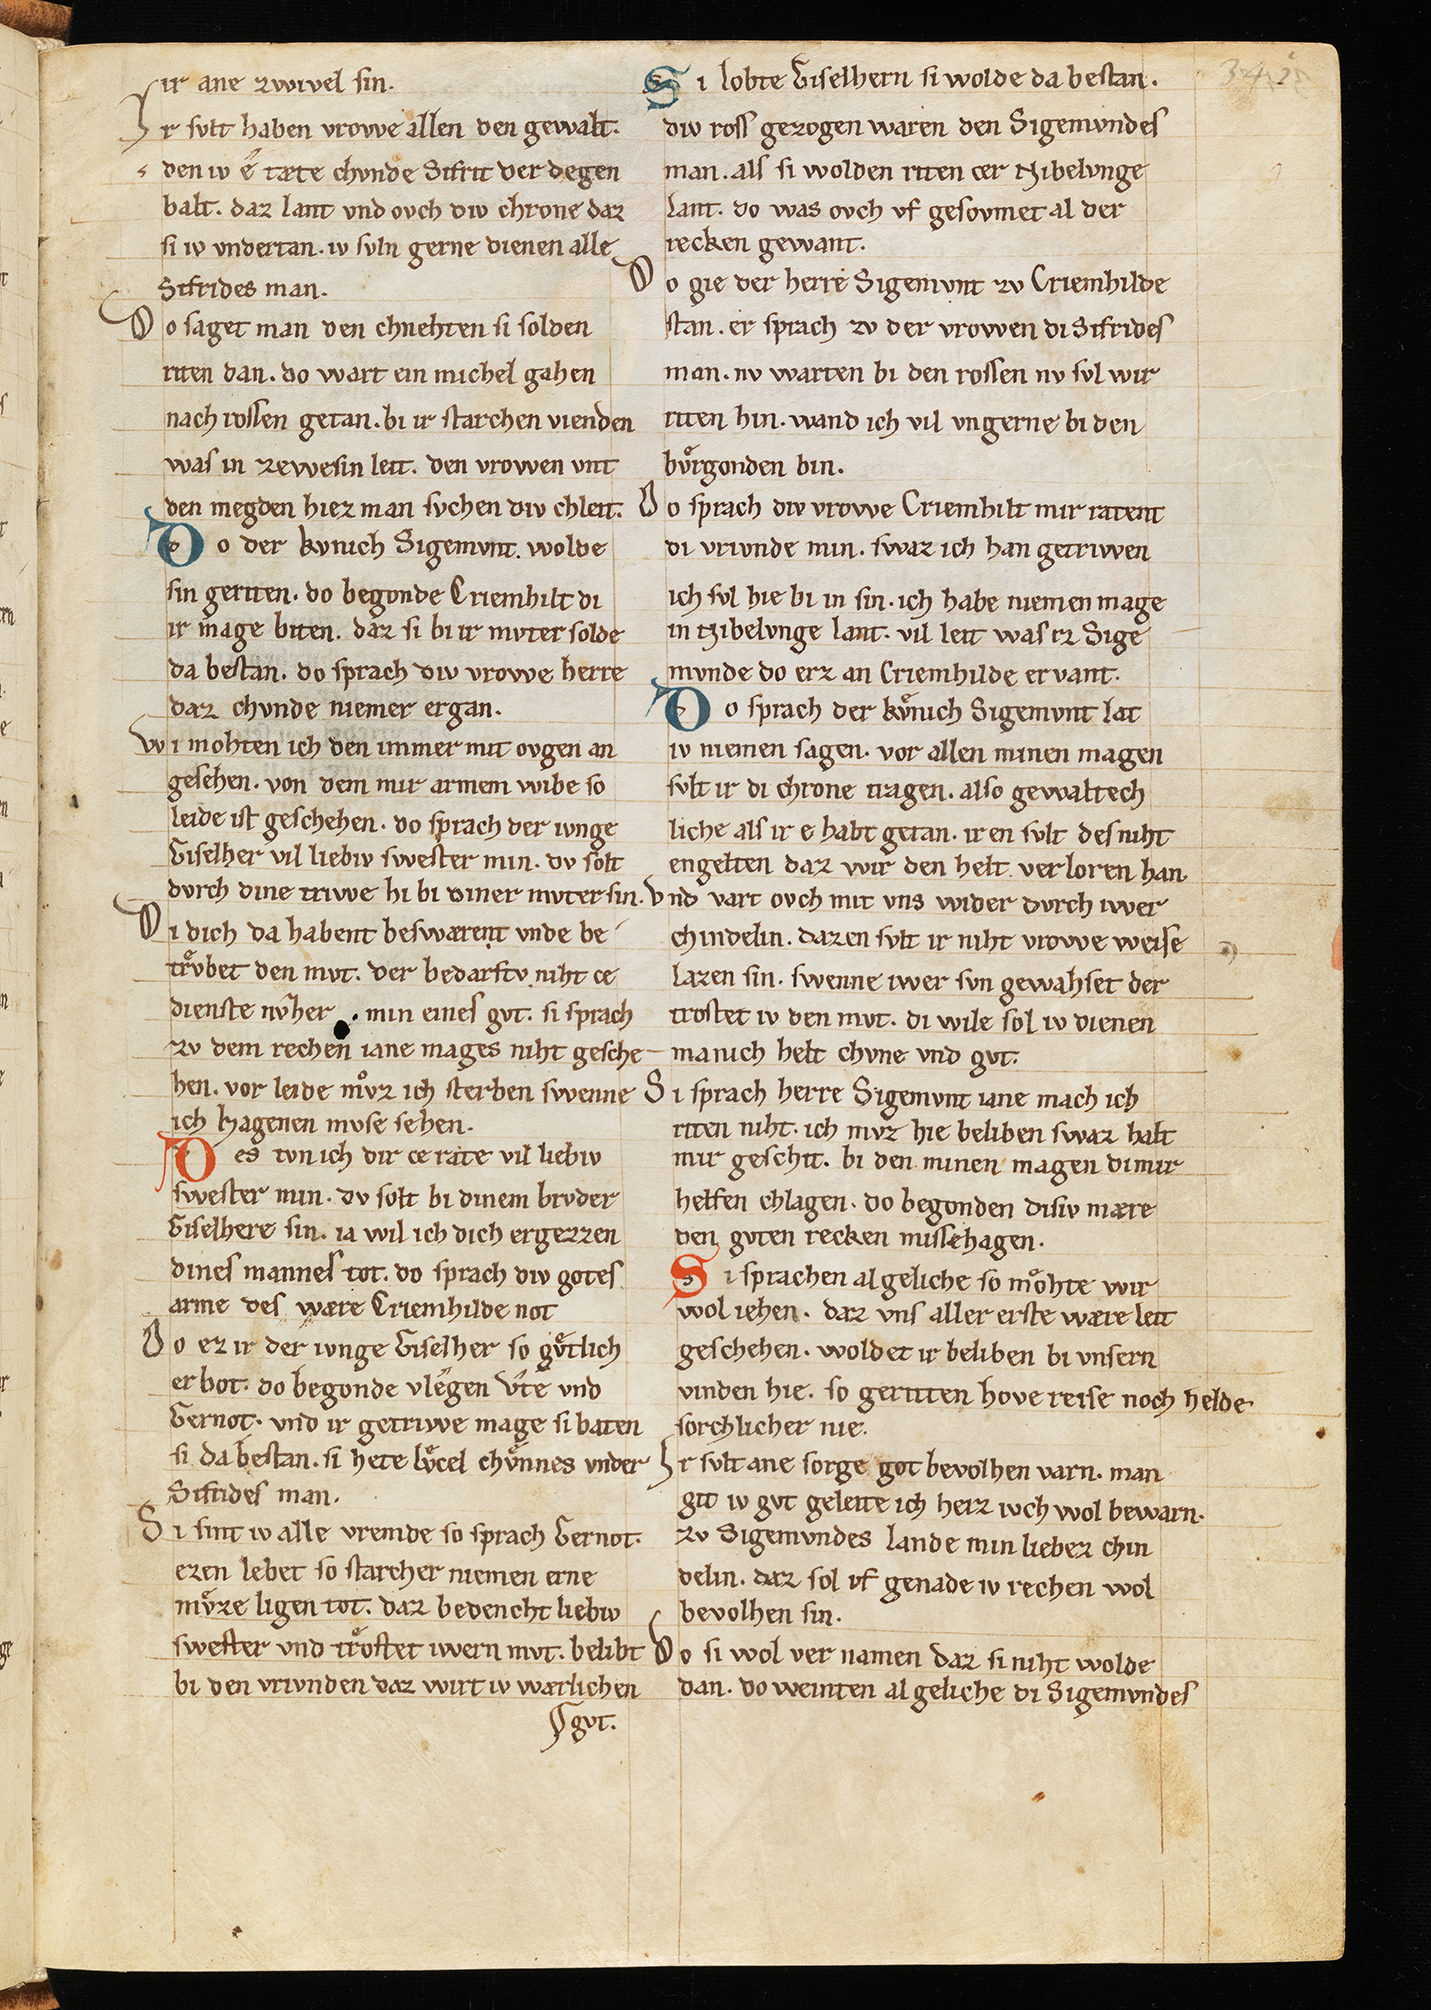 ir ane zwivel sin.
Ir svlt haben vrowe allen den gewalt.
den iv e tæte chvnde Sifrit der degen
balt. daz lant vnd ovch div chrone daz
si iv vndertan. iv svln gerne dienen alle
Sifrides man.
Do saget man den chnehten si solden
riten dan. do wart ein michel gahen
nach rossen getan. bi ir starchen vienden
was in zewesin leit. den vrowen vnt
den megden hiez man svchen div chleit.
Do der kvnich Sigemvnt. wolde
sin geriten. do begonde Criemhilt di
ir mage biten. daz si bi ir mvter solde
da bestan. do sprach div vrowe herre
daz chvnde niemer ergan.
Wi mohten ich den immer mit ovgen an
gesehen. von dem mir armem wibe so
leide ist geschehen. do sprach der ivnge
Giselher vil liebiv swester min. dv solt
dvrch dine triwe hi bi diner mvter sin.
Di dich da habent beswærent vnde be
trvͦbet den mvt. der bedarftv niht ce
dienste nv̂her . min eines gvt. si sprach
zv dem rechen iane mages niht gesche
hen. vor leide mvͦz ich sterben swenne
ich Hagenen mvse sehen.
Des tvn ich dir ce rate vil liebiv
swester min. dv solt bi dinem brvder
Giselhere sin. ia wil ich dich ergezzen
dines mannes tot. do sprach div gotes
arme des wære Criemhilde not
Do ez ir der ivnge Giselher so gvͤtlich
erbot. do begonde vlêgen Vͦte vnd
Gernot. vnd ir getriwe mage si baten
si da bestan. si hete lvͤcel chvͤnnes vnder
Sifrides man.
Si sint iv alle vremde so sprach Gernot.
ezen lebet so starcher niemen erne
mvͤze ligen tot. daz bedencht liebiv
swester vnd trͦstet iwern mvt. belibt
bi den vrivnden daz wirt iv wærlichen
gvt.
Si lobte Giselhern si wolde da bestan.
div ross gezogen waren den Sigemvndes
man. als si wolden riten cer Nibelvnge
lant. do was ovch vf gesovmet al der
recken gewant.
Do gie der herre Sigemvnt zv Criemhilde
stan. er sprach zv der vrowen di Sifrides
man. nv warten bi den rossen nv svl wir
riten hin. wand ich vil vngerne bi den
bvͤrgonden bin.
Do sprach div vrowe Criemhilt mir ratent
di vrivnde min. swaz ich han getriwen
ich svl hie bi in sin. ich habe niemen mage
in Nibelvnge lant. vil leit was ez Sige
mvnde do erz an Criemhilde ervant.
Do sprach der kvͤnich Sigemvnt lat
iv niemen sagen. vor allen minen magen
svlt ir di chrone tragen. also gewaltech
liche als ir e habt getan. iren svlt des niht
engelten daz wir den helt verloren han.
Vnd vart ovch mit vns wider dvrch iwer
chindelin. dazen svlt ir niht vrowe weise
lazen sin. swenne iwer svn gewahset der
trostet iv den mvt. di wile sol iv dienen
manich helt chvne vnd gvt.
Si sprach herre Sigemvnt iane mach ich
riten niht. ich mvz hie beliben swaz halt
mir geschit. bi den minen magen di mir
helfen chlagen. do begonden disiv mære
den gvten recken missehagen.
Si sprachen al geliche so moͤhte wir
wol iehen. daz vns aller erste wære leit
geschehen. woldet ir beliben bi vnsern
vinden hie. so geritten hove reise noch helde
sorchlicher nie.
Ir svlt ane sorge got bevolhen varn. man
git iv gvt geleite ich heiz ivch wol bewarn.
zv Sigemvndes lande min liebez chin
delin. daz sol vf genade iv rechen wol
bevolhen sin.
Do si wol ver namen daz si niht wolde
dan. do weinten al geliche di Sigemvndes